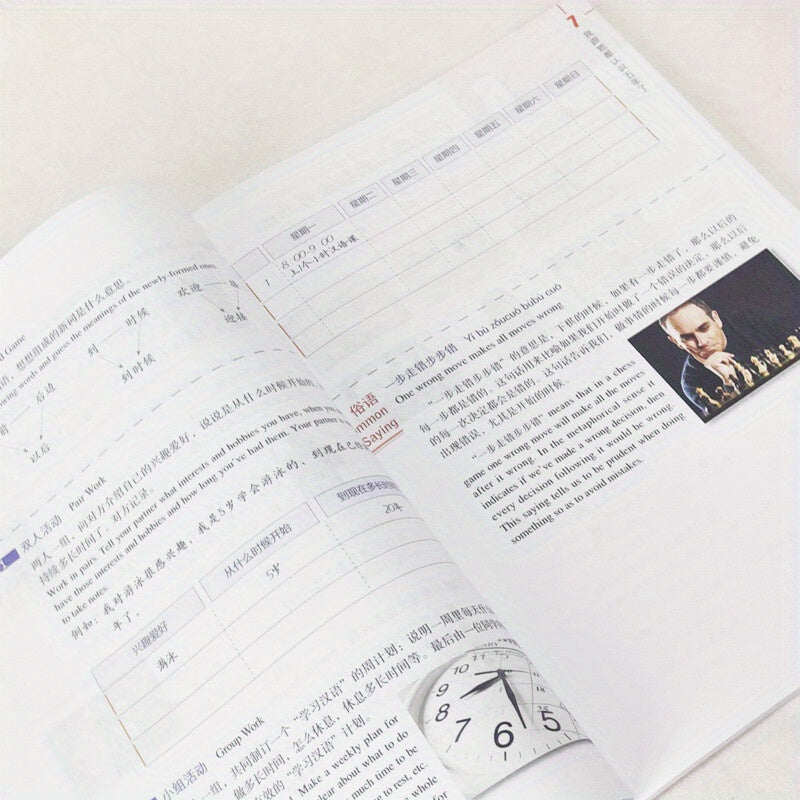 Game
词，想想组成的新词是什么意思。
wing words and guess the meanings of the newly-formed ones.
到 时候
到时候
欢迎
迎接
前 后边
以后
双人活动 Pair Work
两人一组，向对方介绍自己的兴趣爱好，说说是从什么时候开始的，
持续多长时间了。对方记录。
Work in pairs. Tell your partner what interests and hobbies you have, when you
have those interests and hobbies and how long you've had them. Your partner
to take notes.
例如：我对游泳很感兴趣，我是5岁学会游泳的，到现在已经
年了。
兴趣爱好 从什么时候开始 到现在多长时间
游泳 5岁 20年
小组活动 Group Work
一组，共同制订一个“学习汉语”的周计划：说明一周里每天什么
做多长时间，怎么休息，休息多长时间等。最后由一位同学
有效的“学习汉语”计划。
Make a weekly plan for
clear about what to do
much time to be
to rest, etc.
whole
for
10
9
8
7
6
5
7
星期一 星期二 星期三 星期四 星期五 星期六 星期日
1 8:00-9:00
上1个小时汉语课
俗语
Common
Saying
一步走错步步错 Yí bù zǒucuò bùbù cuò
One wrong move makes all moves wrong
“一步走错步步错”的意思是，下棋的时候，如果有一步走错了，那么以后的
每一步都是错的。这句话用来比喻如果我们开始时做了一个错误的决定，那么以后
的每一次决定都会是错的。这句话告诉我们，做事情的时候每一步都要谨慎，避免
出现错误，尤其是开始的时候。
“一步走错步步错” means that in a chess
game one wrong move will make all the moves
after it wrong. In the metaphorical sense it
indicates if we've made a wrong decision, then
every decision following it would be wrong.
This saying tells us to be prudent when doing
something so as to avoid mistakes.